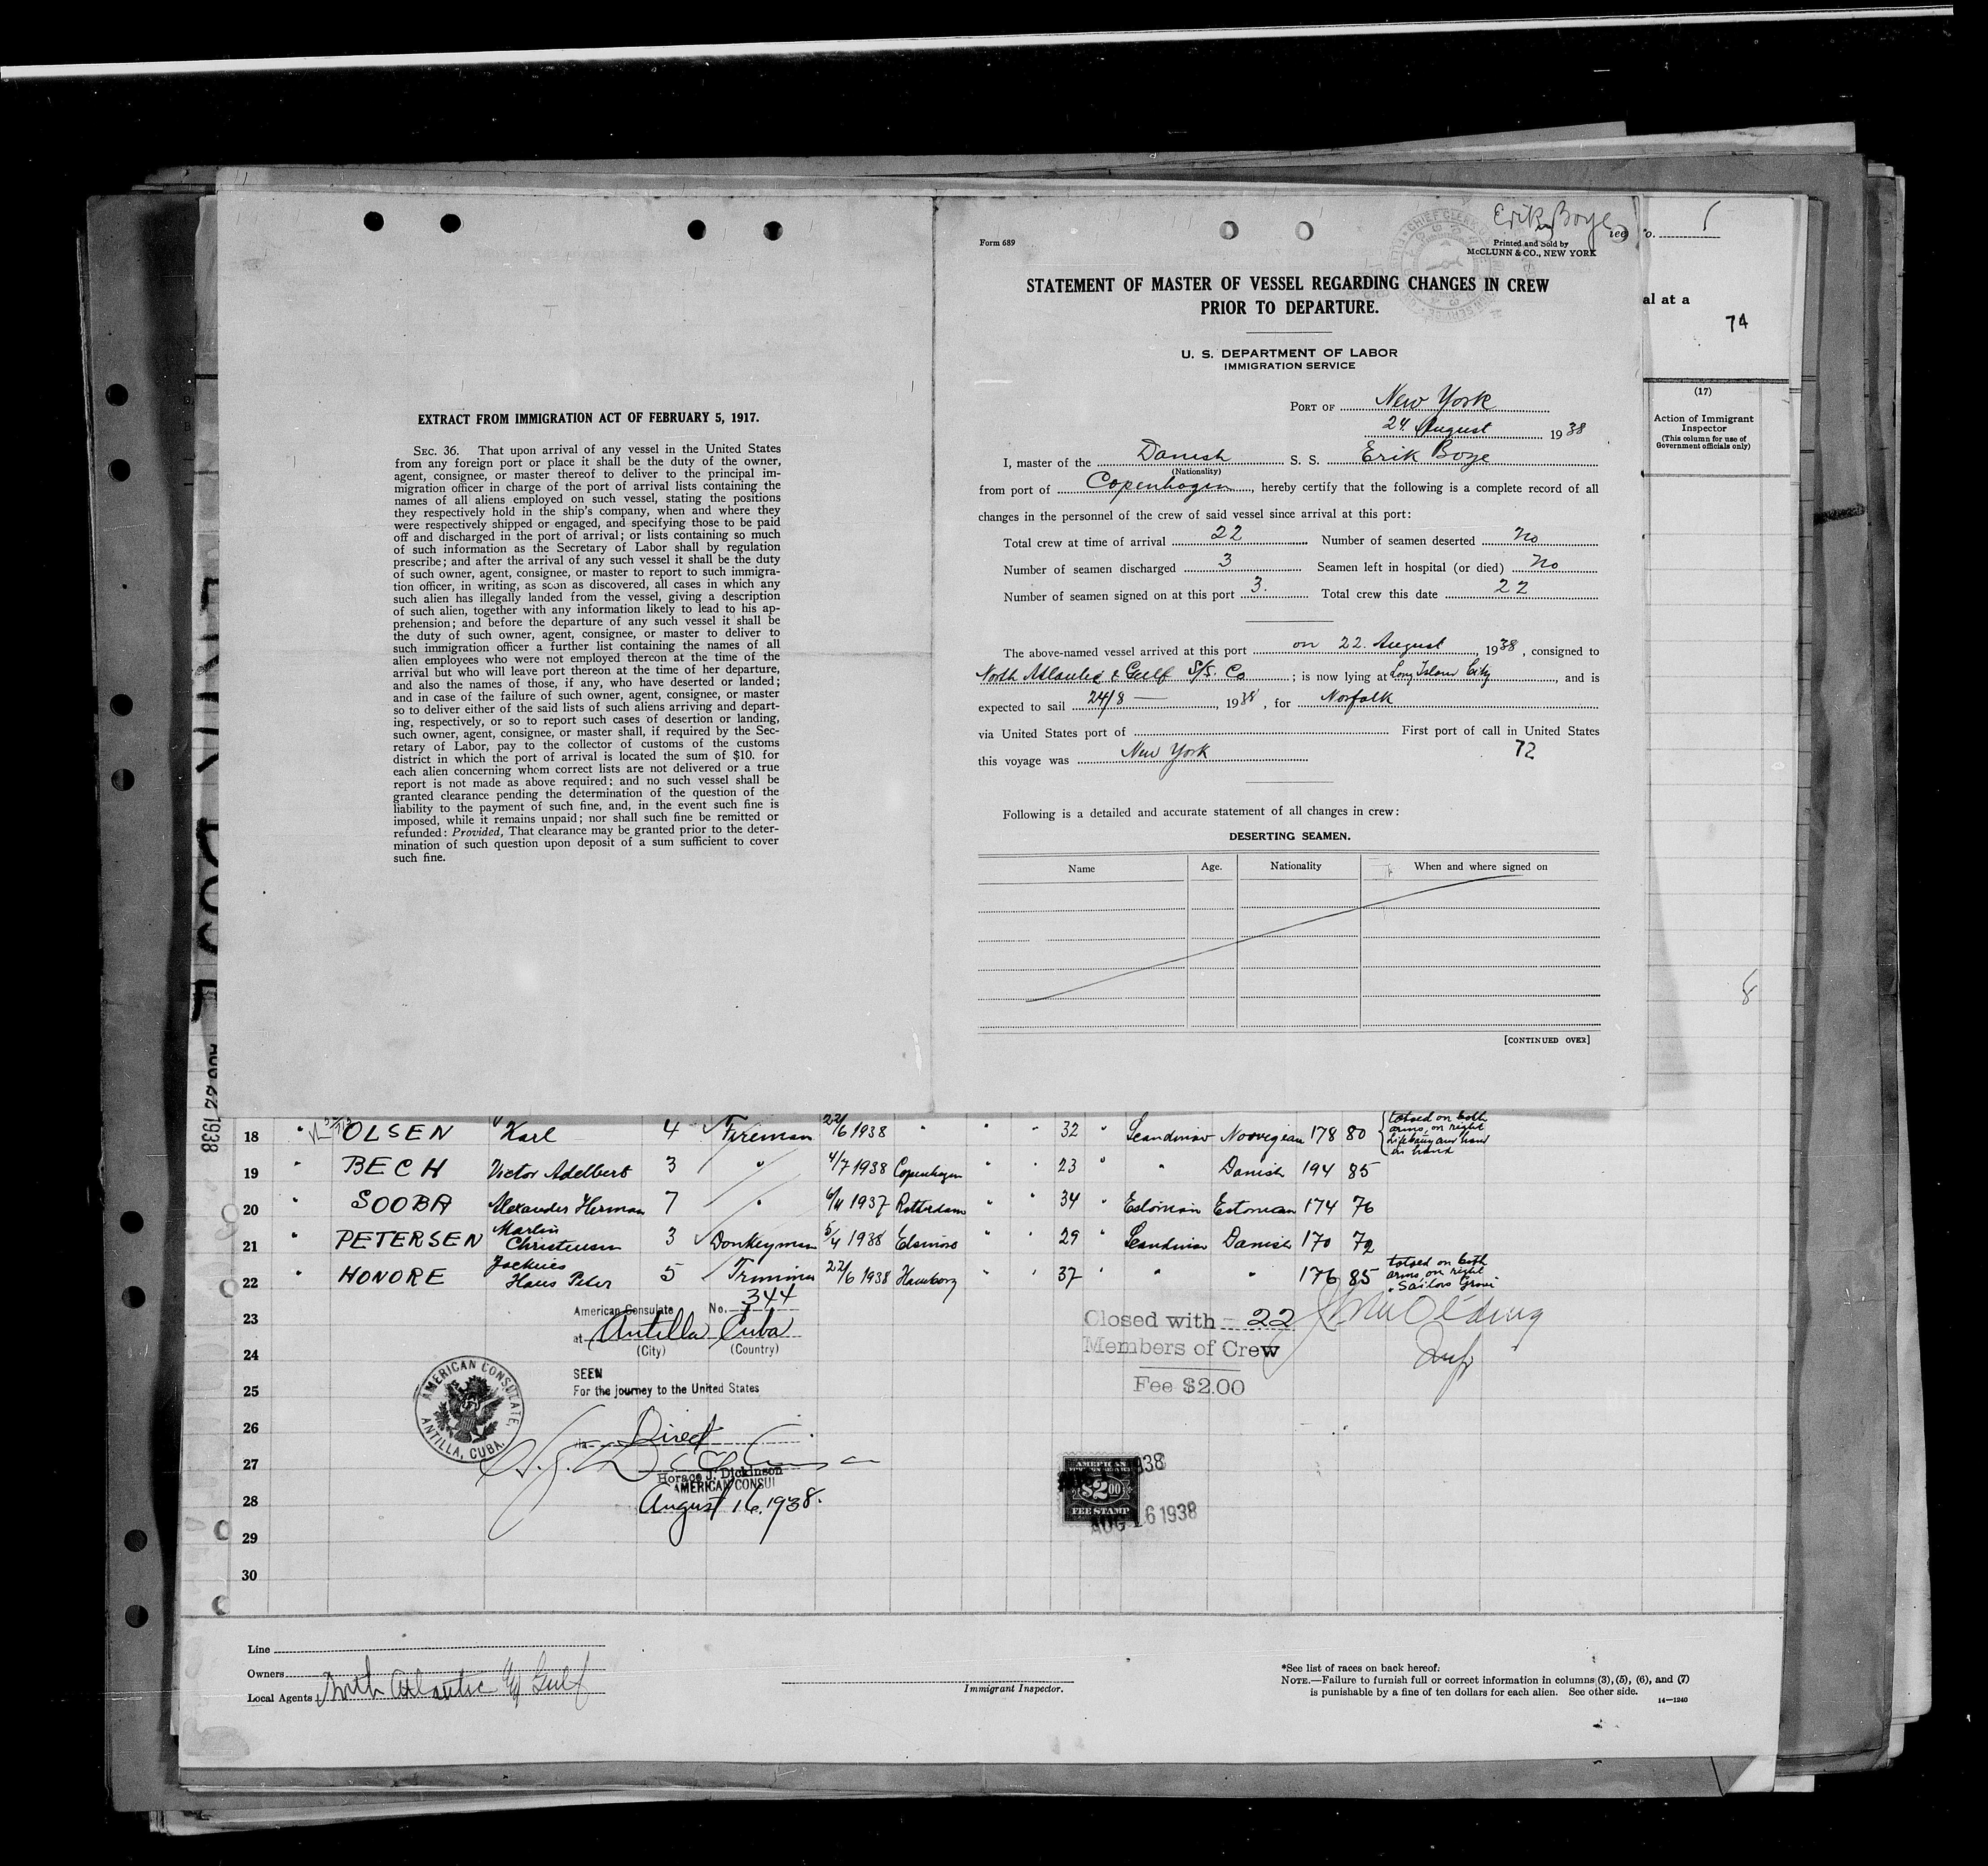 EXTRACT FROM IMMIGRATION ACT OF FEBRUARY 5, 1917.
SEC. 36. That upon arrival of any vessel in the United States
from any foreign port or place it shall be the duty of the owner,
agent, consignee, or master thereof to deliver to the principal im-
migration officer in charge of the port of arrival lists containing the
names of all aliens employed on such vessel, stating the positions
they respectively hold in the ship's company, when and where they
were respectively shipped or engaged, and specifying those to be paid
off and discharged in the port of arrival; or lists containing so much
of such information as the Secretary of Labor shall by regulation
prescribe; and after the arrival of any such vessel it shall be the duty
of such owner, agent, consignee, or master to report to such immigra-
tion officer, in writing, as soon as discovered, all cases in which any
such alien has illegally landed from the vessel, giving a description
of such alien, together with any information likely to lead to his ap-
prehension; and before the departure of any such vessel it shall be
the duty of such owner, agent, consignee, or master to deliver to
such immigration officer a further list containing the names of all
alien employees who were not employed thereon at the time of the
arrival but who will leave port thereon at the time of her departure,
and also the names of those, if any, who have deserted or landed;
and in case of the failure of such owner, agent, consignee, or master
so to deliver either of the said lists of such aliens arriving and depart-
ing, respectively, or so to report such cases of desertion or landing,
such owner, agent, consignee, or master shall, if required by the Sec-
retary of Labor, pay to the collector of customs of the customs
district in which the port of arrival is located the sum of $10. for
each alien concerning whom correct lists are not delivered or a true
report is not made as above required; and no such vessel shall be
granted clearance pending the determination of the question of the
liability to the payment of such fine, and, in the event such fine is
imposed, while it remains unpaid; nor shall such fine be remitted or
refunded: Provided, That clearance may be granted prior to the deter-
mination of such question upon deposit of a sum sufficient to cover
such fine.
Erik Boye
Form 689
Printed and Sold by
McCLUNN & CO., NEW YORK
STATEMENT OF MASTER OF VESSEL REGARDING CHANGES IN CREW
PRIOR TO DEPARTURE.
U. S. DEPARTMENT OF LABOR
IMMIGRATION SERVICE
PORT OF New York
24 August 1938
I, master of the Danish S. S. Erik Boye
(Nationality)
from port of Copenhagen, hereby certify that the following is a complete record of all
changes in the personnel of the crew of said vessel since arrival at this port:
Total crew at time of arrival 22 Number of seamen deserted no
Number of seamen discharged 3 Seamen left in hospital (or died) no
Number of seamen signed on at this port 3. Total crew this date 22
The above-named vessel arrived at this port on 22. August, 1938, consigned to
North Atlantic & Gulf S/S. Co; is now lying at Long Island City, and is
expected to sail 24/8 —, 1938, for Norfolk
via United States port of First port of call in United States
this voyage was New York 72
Following is a detailed and accurate statement of all changes in crew:
DESERTING SEAMEN.
Name Age. Nationality When and where signed on
[CONTINUED OVER]
al at a
74
(17)
Action of Immigrant
Inspector
(This column for use of
Government officials only)
8
22 1938
18 " OLSEN Karl 4 Fireman 22/6 1938 " " " 32 " Scandinav Norvegian 178 80 totoed on both
arms, on right
hand
in hand
19 " BECH Victor Adelbert 3 " 4/7 1938 Copenhagen " " 23 " " Danish 194 85
20 " SOOBA Alexander Herman 7 " 1937 Rotterdam " " 34 " Estonian Estonian 174 76
21 " PETERSEN Martin Christensen 3 Donkeyman 5/4 1938 Elsinore " " 29 " Scandinav Danish 170 72
22 " HONORE Hans Peter 5 Trimmer 22/6 1938 Hamborg " " 37 " " " 176 85 totoed on both
arms, on right
23
24
25
26
27
28
29
30
American Consulate No. 344
at Antilla Cuba
(City) (Country)
SEEN
For the journey to the United States
via Direct
Horace J. Dickinson
AMERICAN CONSUL
August 16, 1938.
AMERICAN CONSULATE,
ANTILLA, CUBA.
Closed with 22
Members of Crew
Fee $2.00
AMERICAN
$2.00
FEE STAMP
AUG 16 1938
Line
Owners
Local Agents North Atlantic & Gulf
Immigrant Inspector.
*See list of races on back hereof.
NOTE.—Failure to furnish full or correct information in columns (3), (5), (6), and (7)
is punishable by a fine of ten dollars for each alien. See other side.
14—1240